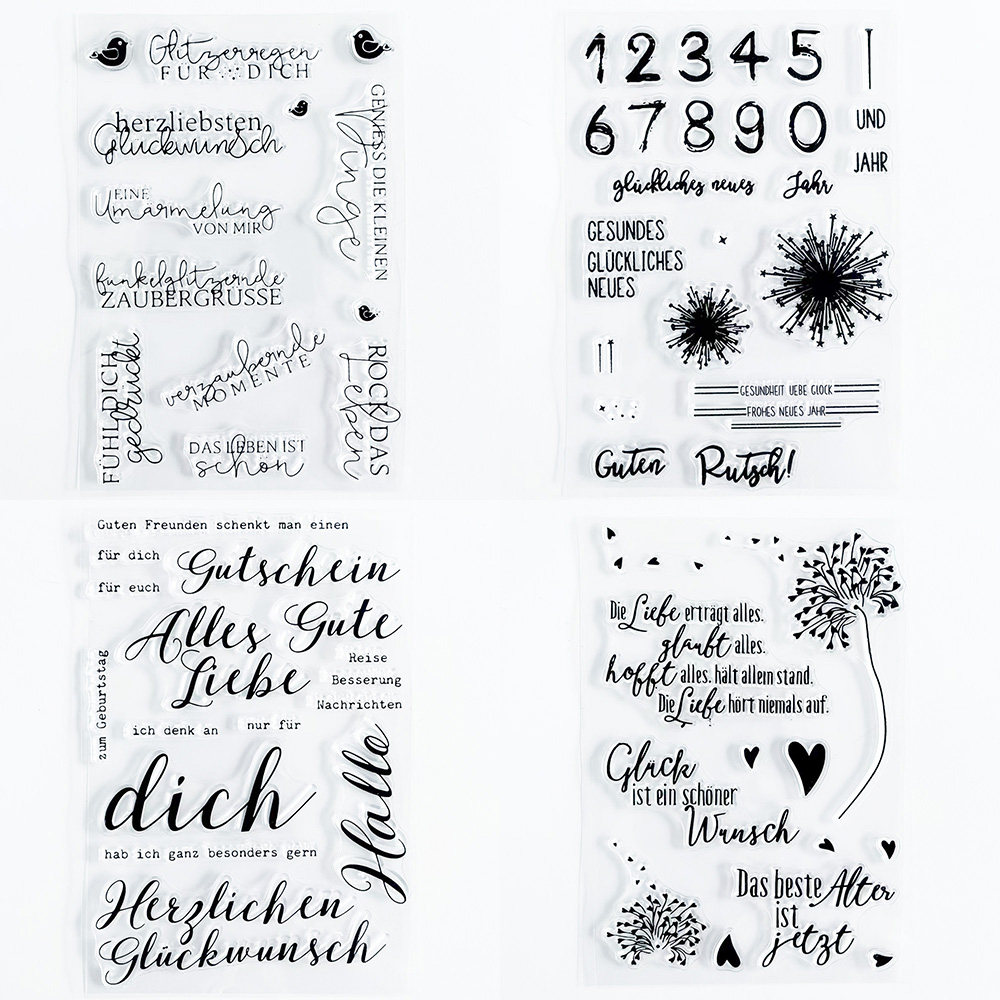 Glitzerregen
FÜR DICH
herzliebsten
Glückwunsch
EINE
Umarmelung
VON MIR
funkelglitzernde
ZAUBERGRÜSSE
GENIESS DIE KLEINEN
Dinge
FÜHL DICH
gedrückt
verzaubernde
MOMENTE
ROCK DAS
Leben
DAS LEBEN IST
schön
1 2 3 4 5
6 7 8 9 0
UND
JAHR
glückliches neues Jahr
GESUNDES
GLÜCKLICHES
NEUES
GESUNDHEIT LIEBE GLÜCK
FROHES NEUES JAHR
Guten Rutsch!
Guten Freunden schenkt man einen
für dich
für euch
Gutschein
Alles Gute
Liebe
Reise
Besserung
Nachrichten
zum Geburtstag
ich denk an
nur für
dich
Hallo
hab ich ganz besonders gern
Herzlichen
Glückwunsch
Die Liebe erträgt alles.
glaubt alles.
hofft alles. hält allem stand.
Die Liebe hört niemals auf.
Glück
ist ein schöner
Wunsch
Das beste Alter
ist
jetzt